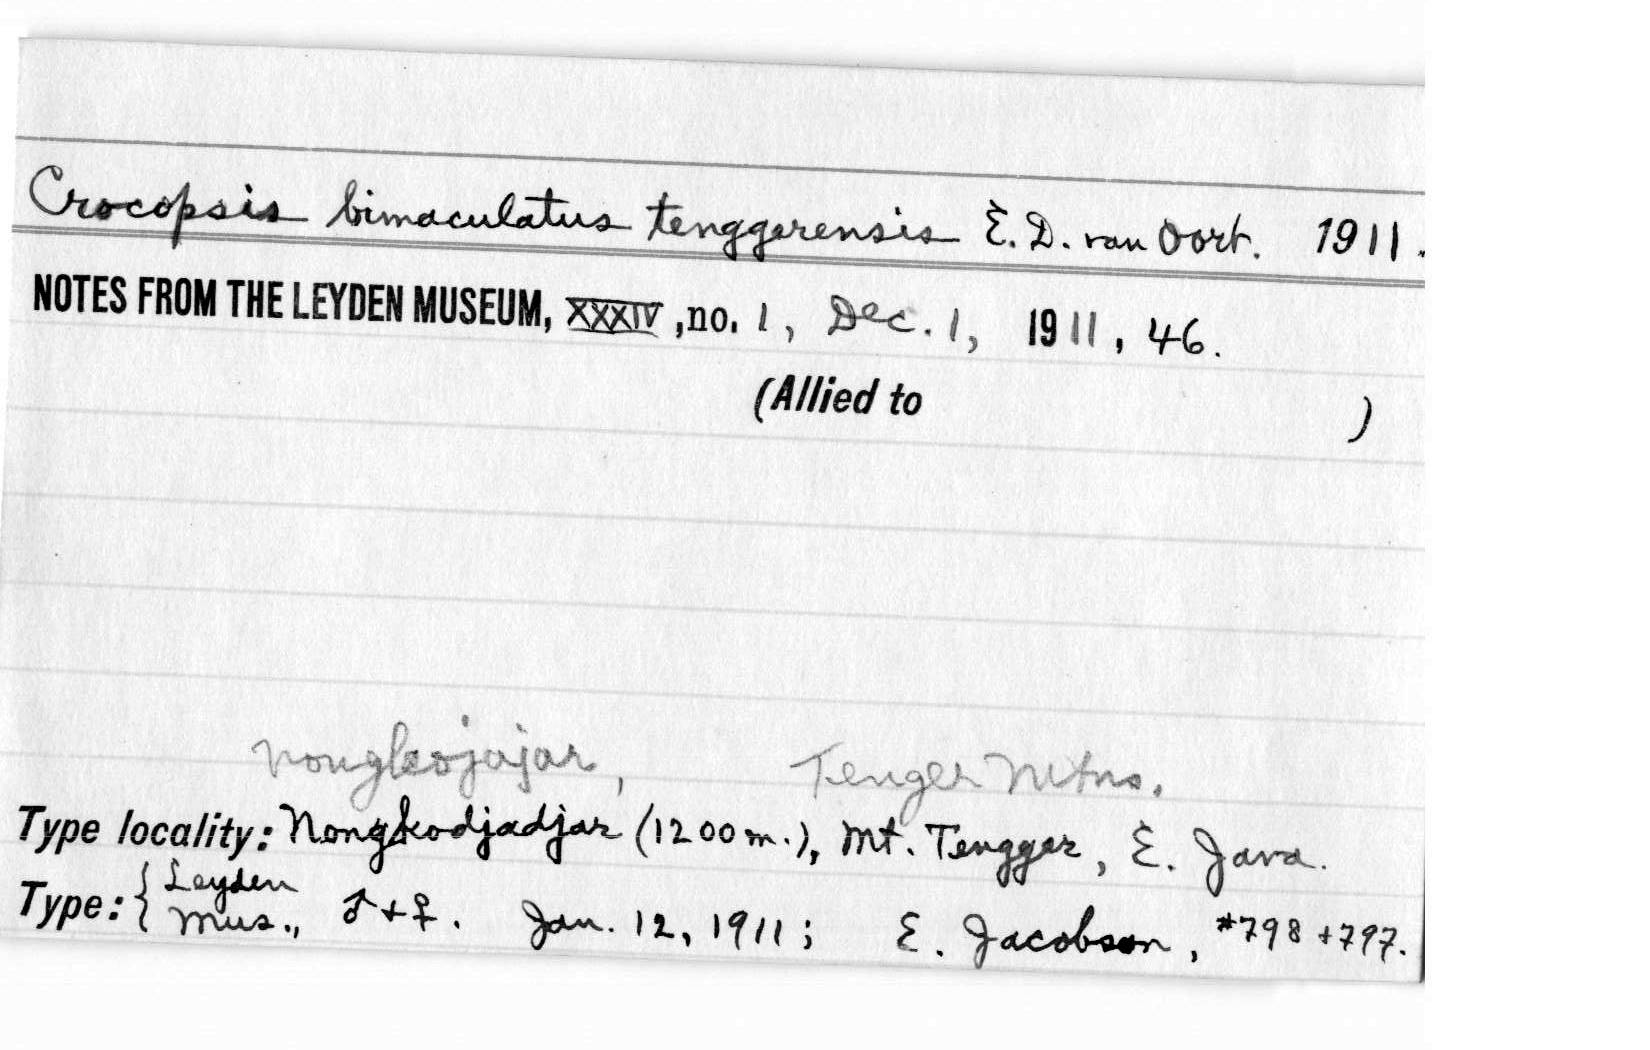 Crocopsis bimaculatus tenggerensis E. D. van Oort. 1911.
NOTES FROM THE LEYDEN MUSEUM, XXXIV, no. 1, Dec. 1, 1911, 46.
(Allied to )
Nongkojajar, Tenger Mtns.
Type locality: Nongkodjadjar (1200 m.), Mt. Tengger, E. Java.
Type: { Leyden Mus., ♂ + ♀. Jan. 12, 1911; E. Jacobson, #798 + 797.